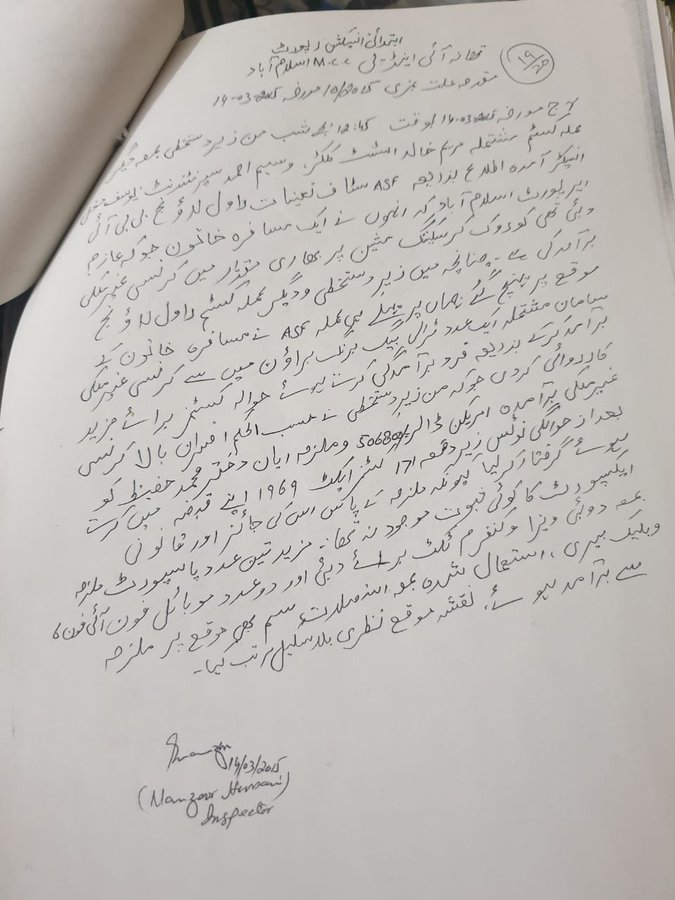 ابتدائی انسپکشن رپورٹ
۱۹/20
تھانہ آئی اینڈ پی M.C.C اسلام آباد
مقدمہ علت نمبری 10/2015 مورخہ 14-03-2015
آج مورخہ 14-03-2015 بوقت 12:45 بجے شب من زیر دستخطی بمعہ دیگر
عملہ کسٹم مشتملہ مریم خالد اسسٹنٹ کلکٹر، وسیم احمد سپرنٹنڈنٹ یوسف
انسپکٹر آمدہ اطلاع بذریعہ ASF سٹاف تعینات راول لاؤنج بی بی آئی
ایرپورٹ اسلام آباد کہ انھوں نے ایک مسافرہ خاتون جو کہ عازم
دبئی تھی کو روک کر سکیننگ مشین پر بھاری مقدار میں کرنسی غیر ملکی
برآمد کی ہے۔ چنانچہ میں زیر دستخطی و دیگر عملہ کسٹم راول لاؤنج
موقع پر پہنچ گئے جہاں پر پہلے ہی عملہ ASF نے مسافرہ خاتون کے
سامان مشتملہ ایک عدد ٹرالی بیگ برنگ براؤن میں سے کرنسی غیر ملکی
برآمد کرکے بذریعہ فرد برآمدگی کرتے ہوئے حوالہ کسٹمز برائے مزید
کارروائی کردی جو کہ من زیر دستخطی نے حسب الحکم افسران بالا کرنسی
غیر ملکی برآمدہ امریکن ڈالر 506800/ و ملزمہ ایان دختر محمد حفیظ کو
بعد از حوالگی نوٹس زیر دفعہ 171 کسٹمز ایکٹ 1969 اپنے قبضہ میں کرتے
ہوئے گرفتار کر لیا کیونکہ ملزمہ کے پاس اس کی جائز اور قانونی
ایکسپورٹ کا کوئی ثبوت موجود نہ تھا۔ مزید تین عدد پاسپورٹ ملزمہ
بمعہ دوبئی ویزا و کنفرم ٹکٹ برائے دبئی اور دو عدد موبائل فون آئی فون 6
و بلیک بیری، استعمال شدہ بمعہ سم بھی موقع پر ملزمہ
سے برآمد ہوئے۔ نقشہ موقع نظری بلا سکیل مرتب کیا۔
14/03/2015
(Manzoor Hussain)
Inspector